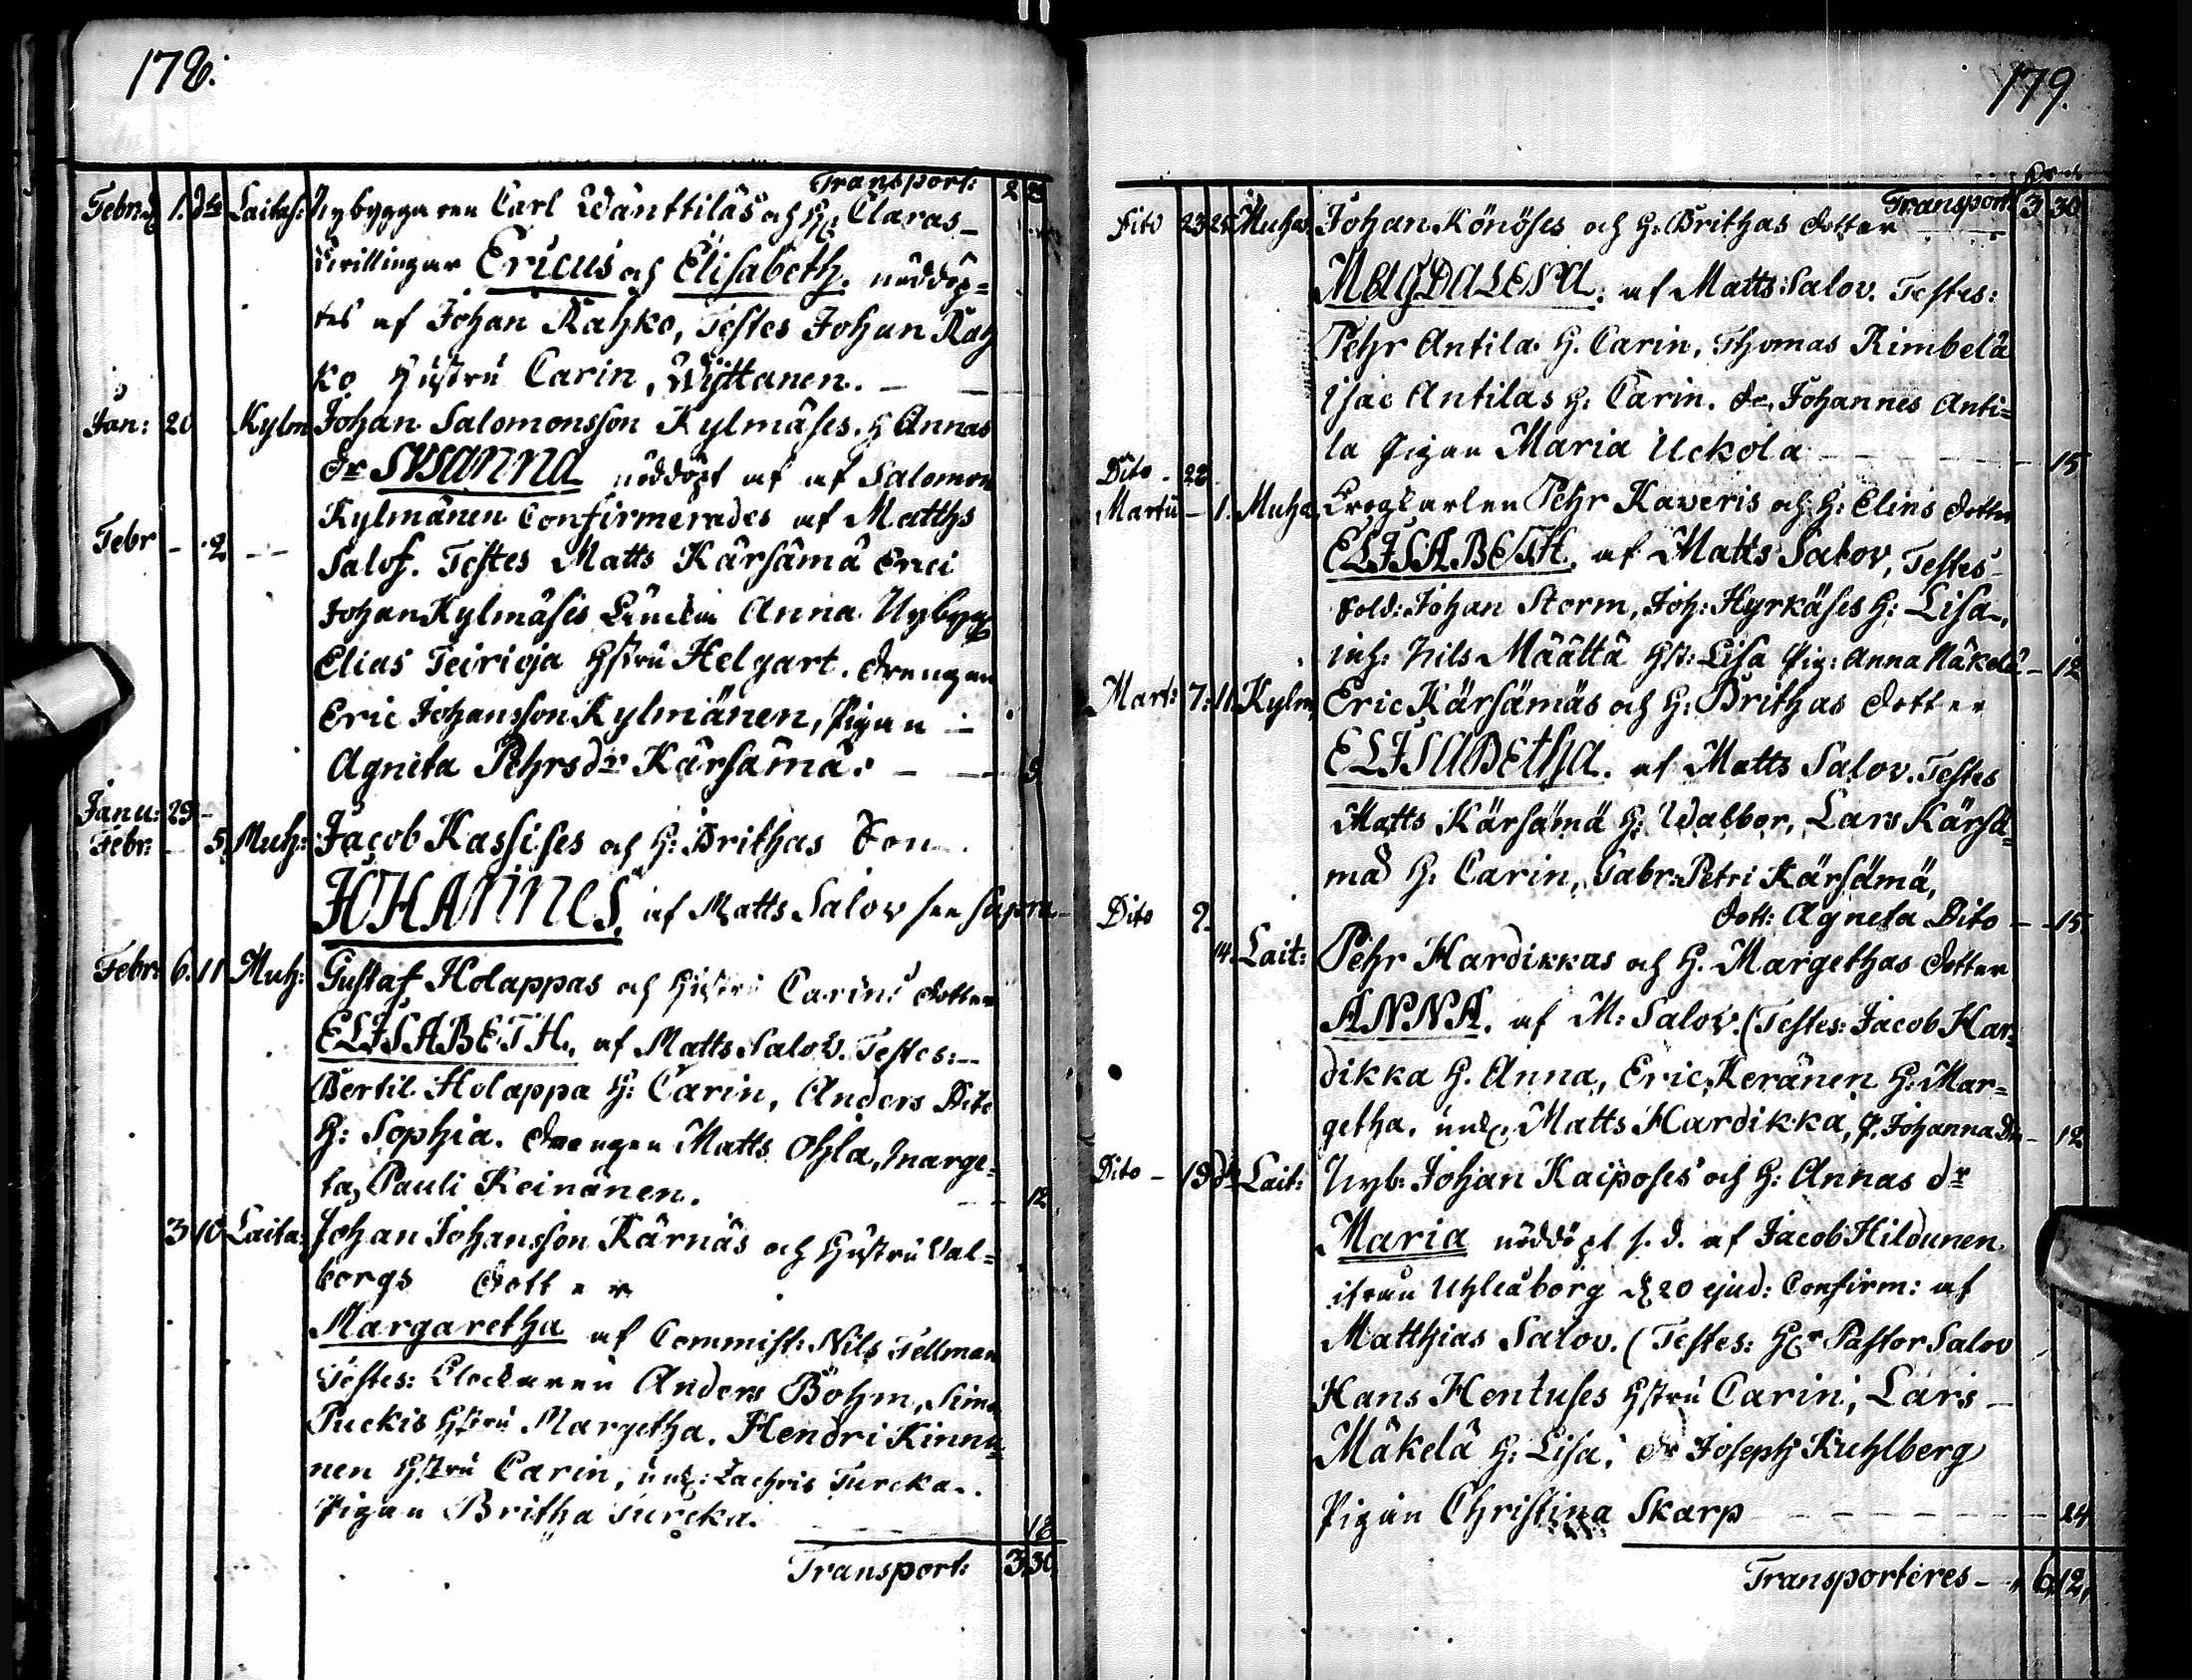 178.
Transport: 2 23
Febru 1. dto Laitas: Nybyggaren Carl Wänttiläs och H: Claras
tvillingar Ericus och Elisabeth. nöddöp=
tes af Johan Rahko, Testes Johan Rah
ko Hustru Carin, Wijttanen.
Jan: 20 Kylm Johan Salomonsson Kylmäses. H Annas
dr SUSANNA nöddöpt af af Salomon
Kylmänen Confirmerades af Matths
Febr - 2 - Salof. Testes Matts Kärsämä Erici
Johan Kylmäses Anna Nybygg
Elias Teirioja Hstru Helgart. drengen
Eric Johansson Kylmänen, Pigan
Agneta Pehrsdr Kärsämä. - 9
Janu: 29 -
Febr: - 5. Muh: Jacob Kassises och H: Brithas Son
JOHANNES. af Matts Salov see supra
Febr: 6. 11 Muh: Gustaf Holappas och Hustru Carins dotter
ELISABETH, af Matts Salov. Testes:
Bertil Holappa H: Carin, Anders Dito
H: Sophia. drengen Matts Ohla, Marge=
ta, Pauli Keinänen. - 12
3 10 Laita: Johan Johansson Kärnäs och Hustru Val=
borgs dotter
Margaretha af Commist: Nils Tellman
Testes: Clockaren Anders Bohm, Simo
Puckis Hstru Margetha. Hendri Kinnu=
nen Hstru Carin, ungk: Zachris Turcka.
Pigan Britha Turcka. - 18
Transport: 3 30
179.
Transport 3 30
Dito 23 25 Muhos Johan Könöses och H. Brithas dotter
MAGDALENA. af Matts Salov. Testes:
Pehr Antila H. Carin, Thomas Kimbelä
Isac Antilas H: Carin. dr. Johannes Anti=
la Pigan Maria Uckola - 15
Dito - 28
Martii - 1. Muho. Pehr Kaweris och H: Elins dotter
ELISABETH. af Matts Salov, Testes
Sold: Johan Storm, Joh: Hyrkäses H: Lisa,
inh: Nils Määttä Hst: Lisa Pig: Anna Mäkelä - 12
Mart: 7. 11. Kylm Eric Kärsämäs och H: Brithas dotter
ELISABETHA. af Matts Salov. Testes
Matts Kärsämä H: Walbor, Lars Kärsä=
mä H: Carin, Gabr: Petri Kärsämä,
dott: Agneta Dito - 15
Dito 9. 14. Lait: Pehr Hardikkas och H. Margethas dotter
ANNA. af M: Salov. (Testes: Jacob Har=
dikka H. Anna, Eric Keränen H: Mar=
getha, ungk. Matts Hardikka, P. Johanna Do - 12
Dito - 19 dto Lait: Nyb: Johan Kaiposes och H: Annas dr
Maria nöddöpt s. d. af Jacob Hildunen
ifrån Uhleåborg d 20 ejud: Confirm: af
Matthias Salov. (Testes: Hr Pastor Salov
Hans Hentuses Hstru Carin, Lars
Mäkelä H: Lisa, dr Joseph Kuhlberg
Pigan Christina Skarp - 24
Transporteres - 6 12,